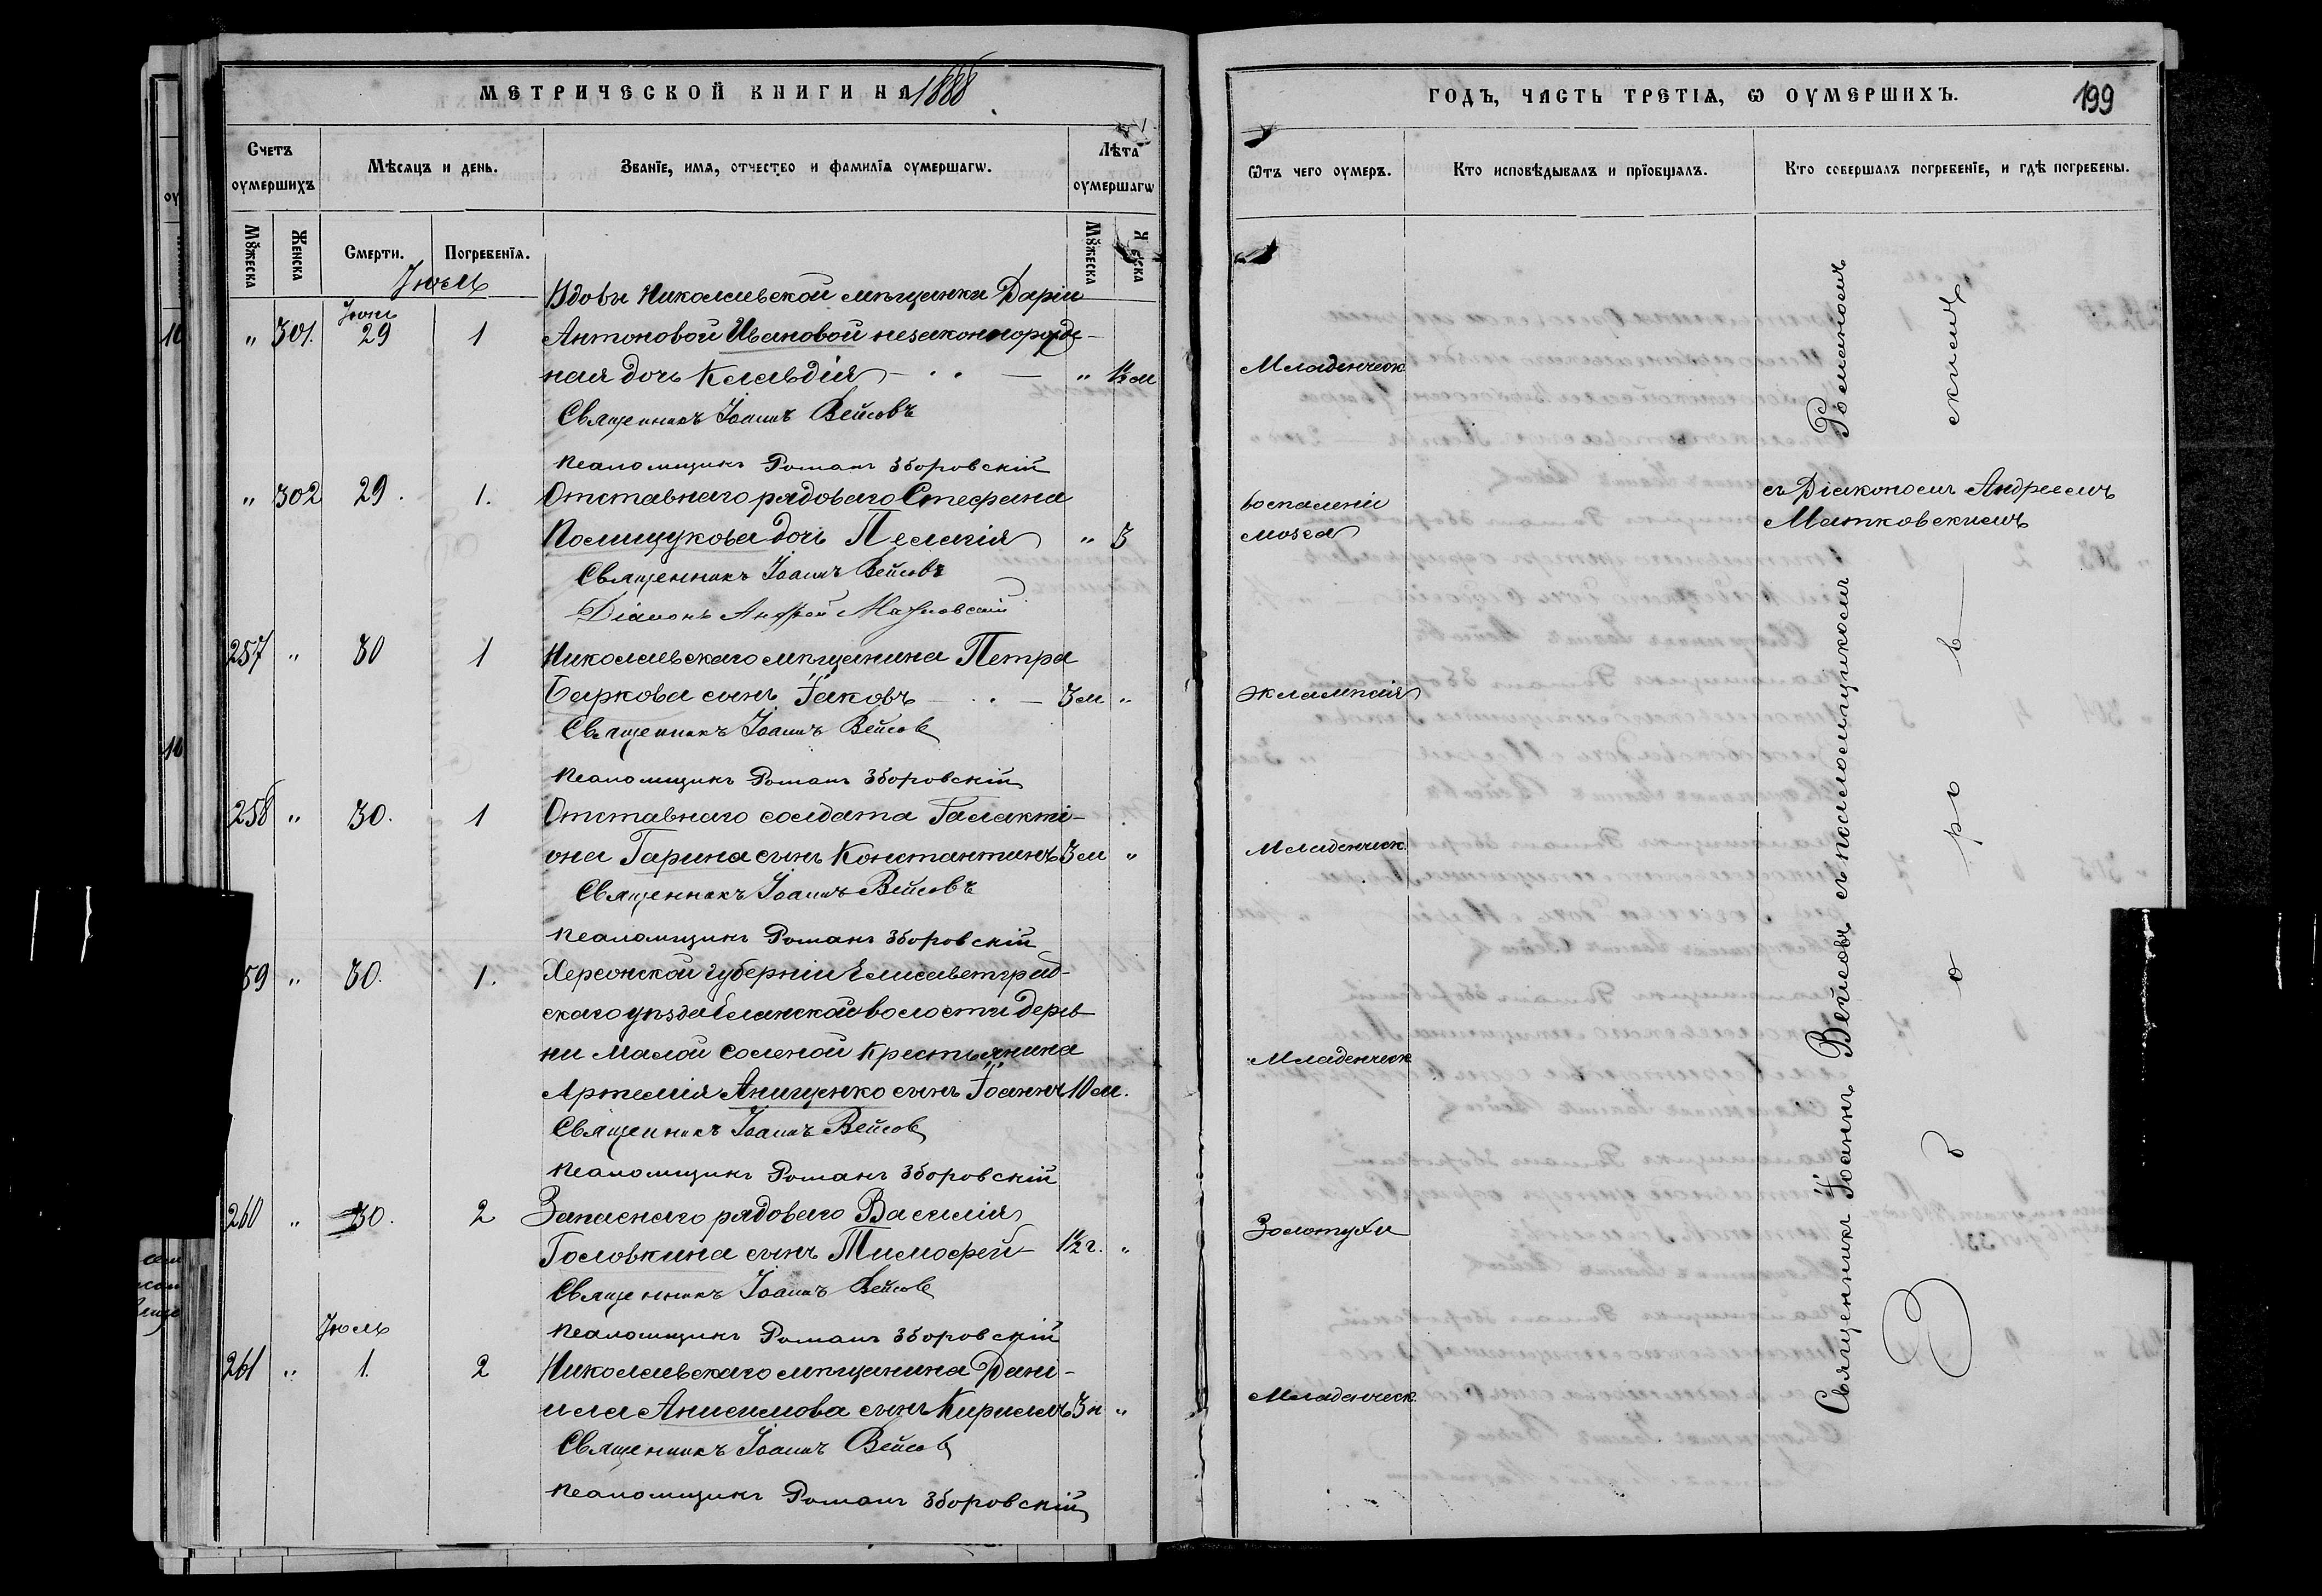 МЕТРИЧЕСКОЙ КНИГИ НА 1888
ГОДЪ, ЧАСТЬ ТРЕТІЯ, Ѡ ОУМЕРШИХЪ.
199
Счетъ оумершихъ
Мѣсяцъ и день.
Званїе, имя, отчество и фамилїа оумершагѡ.
Лѣта оумершагѡ
Ѿтъ чего оумеръ.
Кто исповѣдывалъ и прїобщалъ.
Кто совершалъ погребенїе, и гдѣ погребены.
Мꙋжеска
Женска
Смерти.
Погребенїя.
Мꙋжеска
Іюль
Вдовы Николаевской мѣщанки Даріи
Іюнь
" 301. 29 1 Антоновой Ивановой незаконнорожде-
ная дочь Клавдія " 1½ м Младенческ.
Священникъ Іоаннъ Вейсовъ
Псаломщикъ Романъ Зборовскій
" 302 29. 1. Отставнаго рядоваго Стефана воспаленіи
Полищукова дочь Пелагія " 5 мозга
Священникъ Іоаннъ Вейсовъ
Діаконъ Андрей Матковскій
257 " 30 1 Николаевскаго мѣщанина Петра
Баркова сынъ Іаковъ 3 м " эклампсія
Священникъ Іоаннъ Вейсовъ
Псаломщикъ Романъ Зборовскій
258 " 30. 1 Отставнаго солдата Галакті-
она Гарина сынъ Константинъ 3 м " Младенческ.
Священникъ Іоаннъ Вейсовъ
Псаломщикъ Романъ Зборовскій
59 " 30. 1. Херсонской губерніи Елисаветград-
скаго уѣзда волости дерев-
ни Малой Соленой крестьянина
Артемія Анищенко сынъ Іоаннъ 10 м. Младенческ
Священникъ Іоаннъ Вейсовъ
Псаломщикъ Романъ Зборовскій
260 " 30. 2 Запаснаго рядоваго Василія
Головкина сынъ Тимофей 1½ г. " Золотухи
Священникъ Іоаннъ Вейсовъ
Іюль
Псаломщикъ Романъ Зборовскій
261 " 1. 2 Николаевскаго мѣщанина Дані-
ила Анисимова сынъ Кириллъ 3 н " Младенческ.
Священникъ Іоаннъ Вейсовъ
Псаломщикъ Романъ Зборовскій
Священникъ Іоаннъ Вейсовъ съ псаломщикомъ Романомъ
Зборовскимъ
съ Діакономъ Андреемъ
Матковскимъ